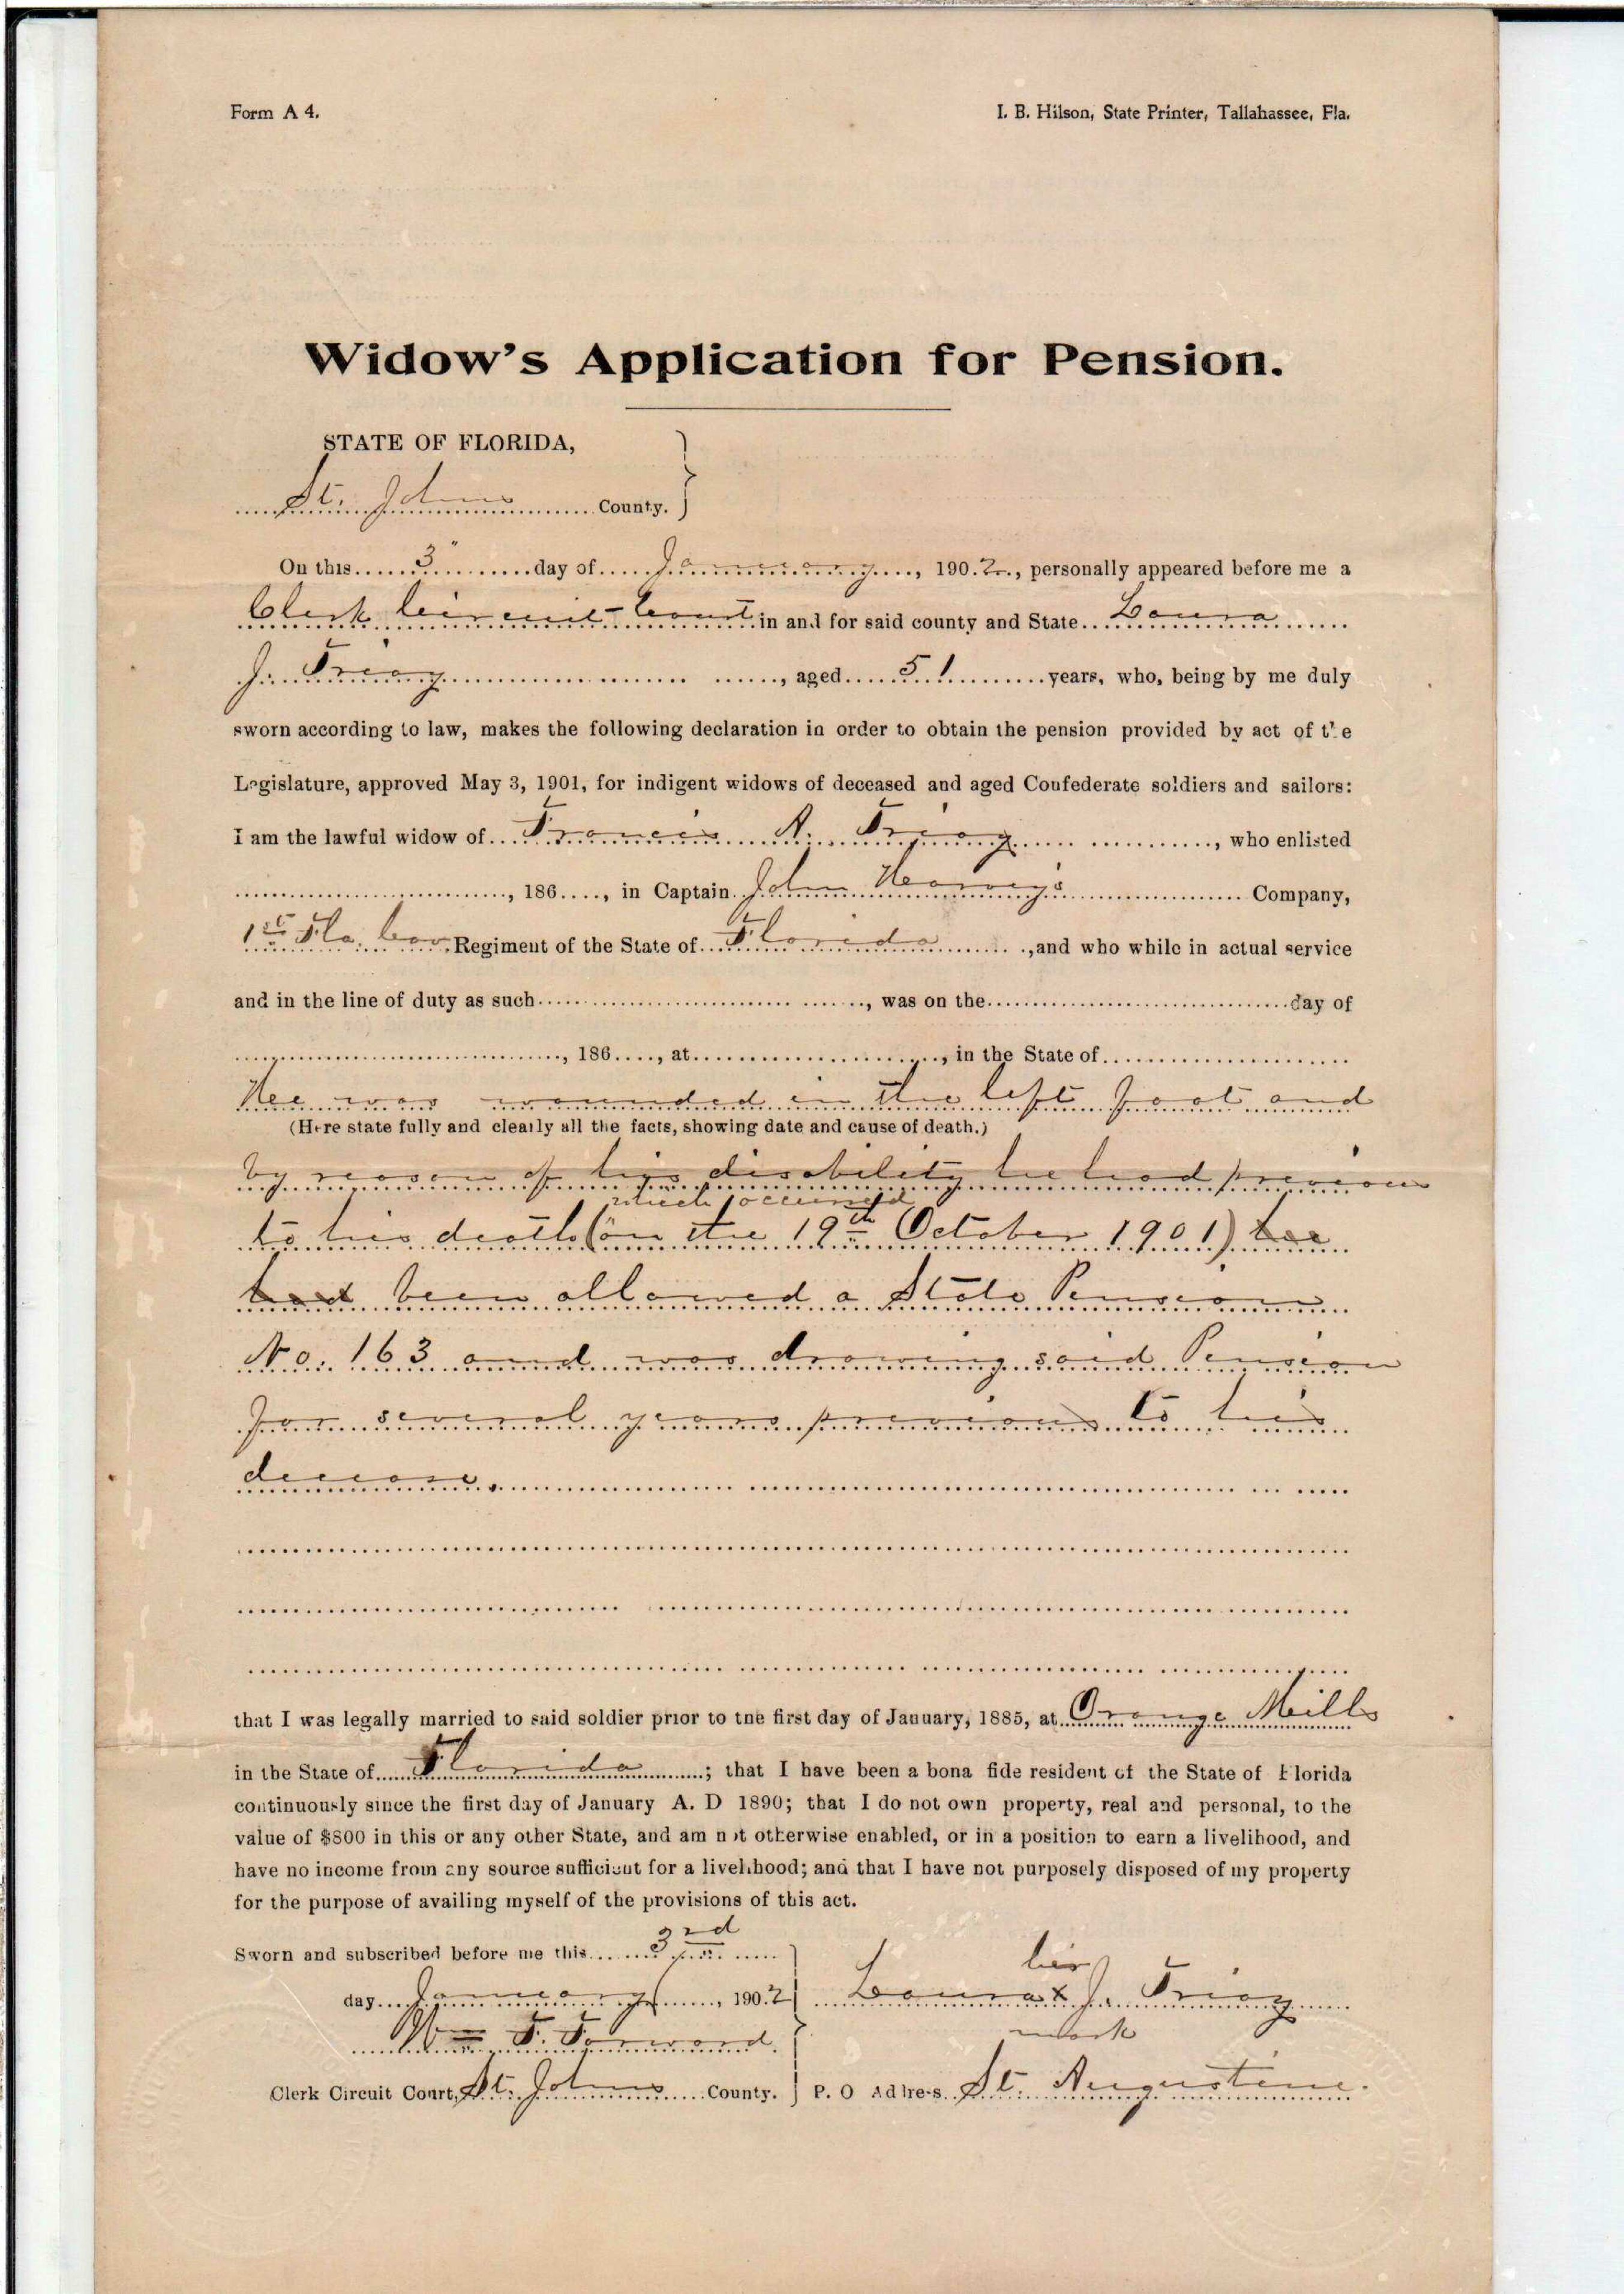 Form A 4.
I. B. Hilson, State Printer, Tallahassee, Fla.
Widow's Application for Pension.
STATE OF FLORIDA,
St. Johns County.
On this 3" day of January, 1902, personally appeared before me a
Clerk Circuit Court in and for said county and State Laura
J. Triay, aged 51 years, who, being by me duly
sworn according to law, makes the following declaration in order to obtain the pension provided by act of the
Legislature, approved May 3, 1901, for indigent widows of deceased and aged Confederate soldiers and sailors:
I am the lawful widow of Francis A. Triay, who enlisted
, 186 , in Captain John Harvey's Company,
1st Fla. Cav. Regiment of the State of Florida, and who while in actual service
and in the line of duty as such , was on the day of
, 186 , at , in the State of
Hee was wounded in the left foot and
(Here state fully and clearly all the facts, showing date and cause of death.)
by reason of his disability he had previous
which occurred
to his death (on the 19th October 1901) hee
had been allowed a State Pension
No. 163 and was drawing said Pension
for several years previous to his
decease.
that I was legally married to said soldier prior to the first day of January, 1885, at Orange Mills
in the State of Florida; that I have been a bona fide resident of the State of Florida
continuously since the first day of January A. D 1890; that I do not own property, real and personal, to the
value of $800 in this or any other State, and am not otherwise enabled, or in a position to earn a livelihood, and
have no income from any source sufficient for a livelihood; and that I have not purposely disposed of my property
for the purpose of availing myself of the provisions of this act.
Sworn and subscribed before me this 3rd
day January, 1902
Wm F. Forward
Clerk Circuit Court, St. Johns County.
her
Laura x J. Triay
mark
P. O Address St. Augustine.